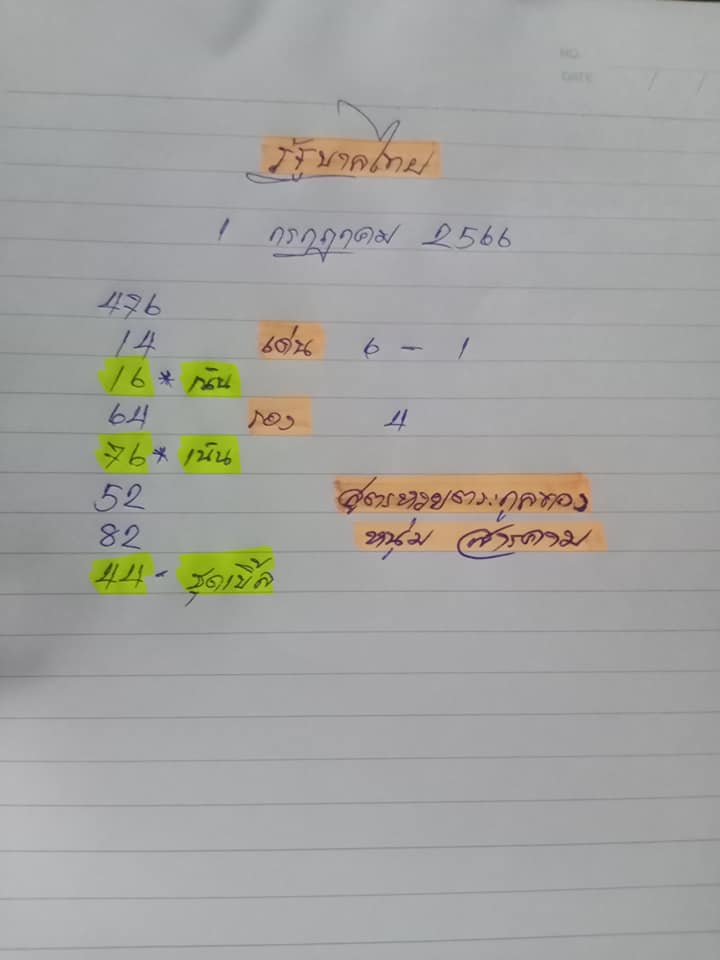 รัฐบาลไทย
1 กรกฎาคม 2566
476
14 เด่น 6 - 1
16 * เน้น
64 รอง 4
76 * เน้น
52 สูตรหวยตระกูลทอง
82 หนุ่ม สารคาม
44 - ชุดเบิ้ล